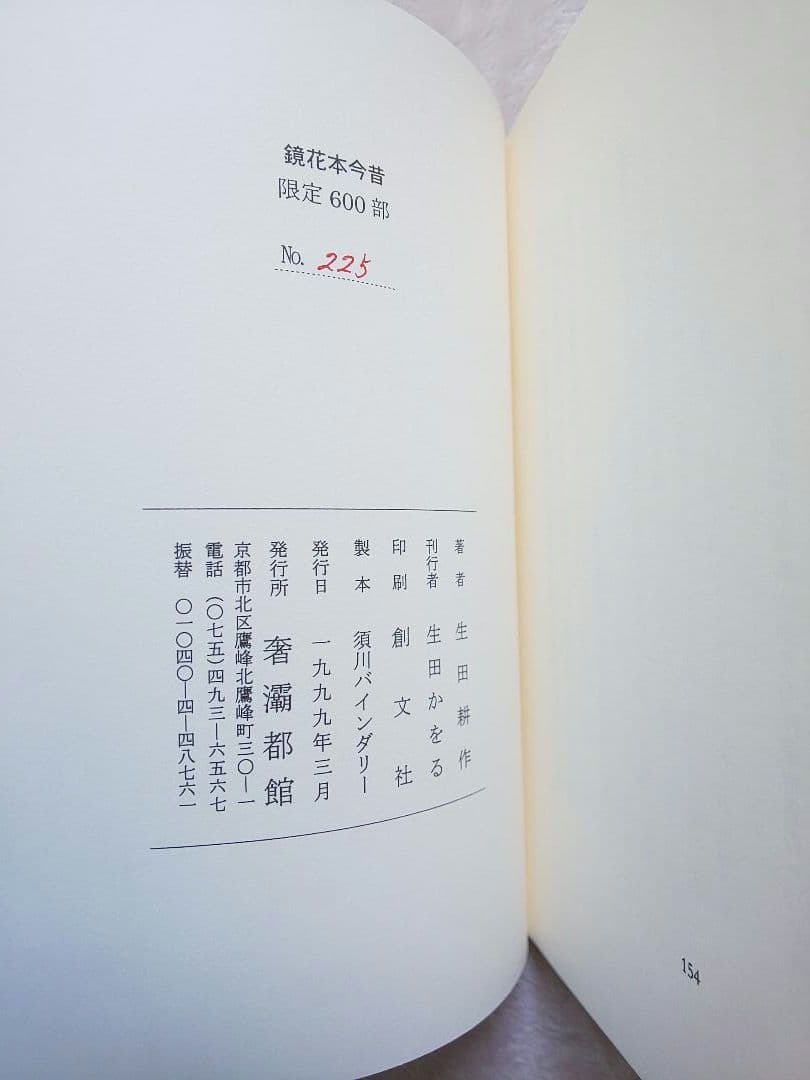 鏡花本今昔
限定600部
No. 225
著者 生田耕作
刊行者 生田かをる
印刷 創文社
製本 須川バインダリー
発行日 一九九九年三月
発行所 奢灞都館
京都市北区鷹峰北鷹峰町三〇―一
電話 (〇七五)四九三―六五六七
振替 〇一〇四〇―四―四八七六一
154